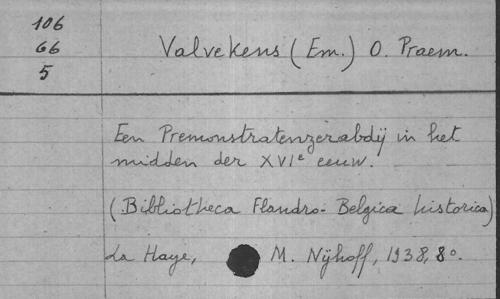 106
66
5
Valvekens (Em.) O. Praem.
Een Premonstratenzerabdij in het
midden der XVIe eeuw.
(Bibliotheca Flandro-Belgica historica)
La Haye, M. Nijhoff, 1938, 8o.